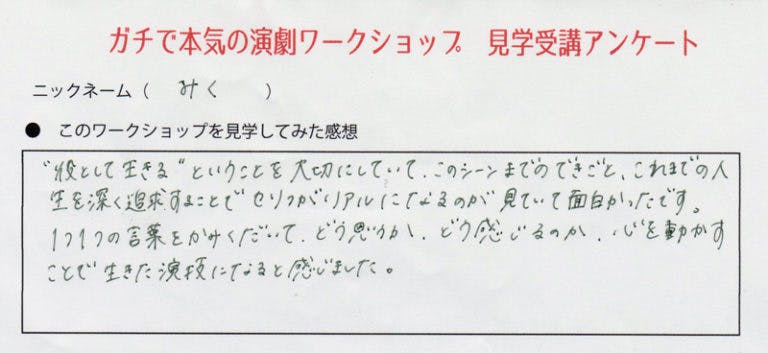 ガチで本気の演劇ワークショップ 見学受講アンケート
ニックネーム( みく )
● このワークショップを見学してみた感想
"役として生きる"ということを大切にしていて、このシーンまでのできごと、これまでの人
生を深く追求することでセリフがリアルになるのが見ていて面白かったです。
1つ1つの言葉をかみくだいて、どう思うか、どう感じるのか、心を動かす
ことで生きた演技になると感じました。